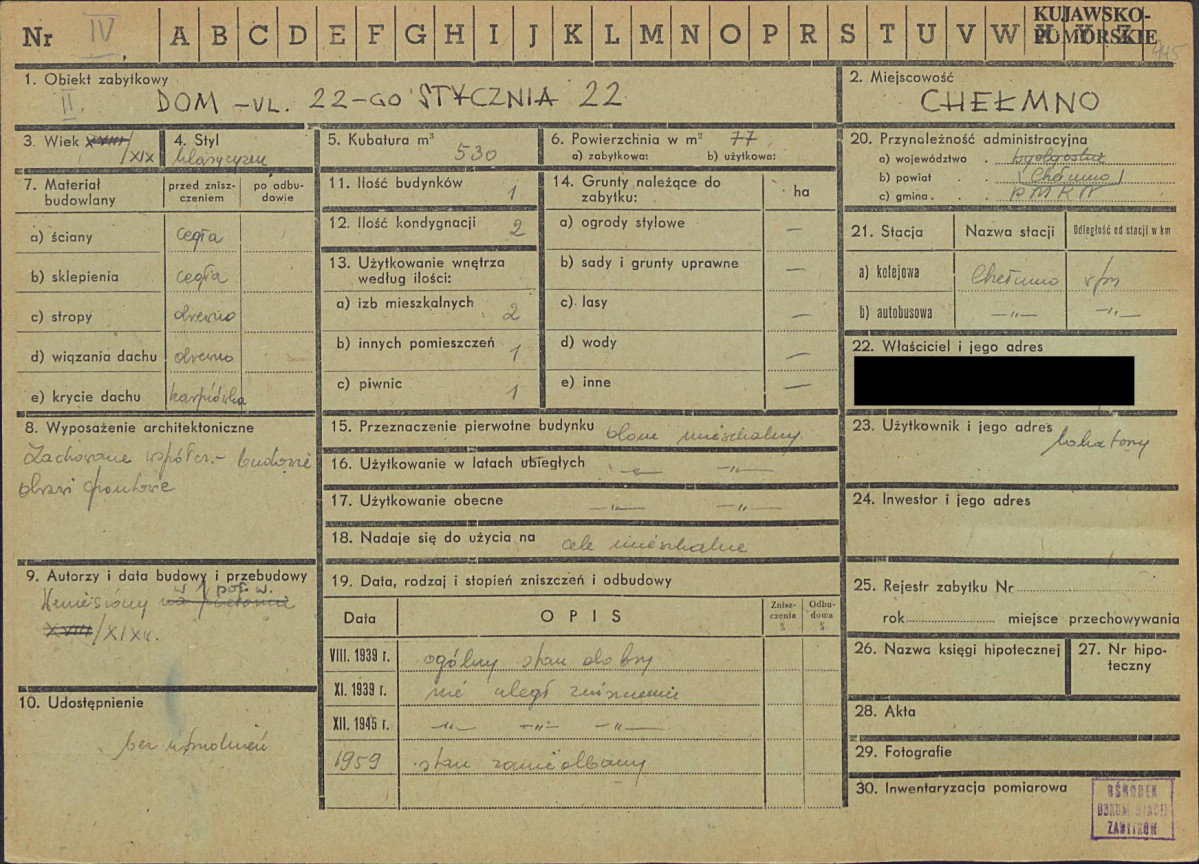 Nr IV A B C D E F G H I J K L M N O P R S T U V W X Y Z
KUJAWSKO-
POMORSKIE
445
1. Obiekt zabytkowy
II. DOM - UL. 22-GO STYCZNIA 22
2. Miejscowość
CHEŁMNO
3. Wiek XVIII/XIX
4. Styl
klasycyzm
5. Kubatura m³ 530
6. Powierzchnia w m² 77
a) zabytkowa: b) użytkowa:
7. Materiał budowlany
przed zniszczeniem
po odbudowie
a) ściany cegła
b) sklepienia cegła
c) stropy drewno
d) wiązania dachu drewno
e) krycie dachu karpiówka
8. Wyposażenie architektoniczne
Zachowane współcz. - budowie
drzwi frontowe
9. Autorzy i data budowy i przebudowy
w 1 poł. w.
Wzniesiony na przełomie
XVIII/XIX w.
10. Udostępnienie
bez utrudnień
11. Ilość budynków 1
12. Ilość kondygnacji 2
13. Użytkowanie wnętrza według ilości:
a) izb mieszkalnych 2
b) innych pomieszczeń 1
c) piwnic 1
14. Grunty należące do zabytku: ha
a) ogrody stylowe —
b) sady i grunty uprawne —
c) lasy —
d) wody —
e) inne —
15. Przeznaczenie pierwotne budynku dom mieszkalny
16. Użytkowanie w latach ubiegłych —„— —„—
17. Użytkowanie obecne —„— —„—
18. Nadaje się do użycia na cele mieszkalne
19. Data, rodzaj i stopień zniszczeń i odbudowy
Data OPIS Zniszczenia % Odbudowa %
VIII. 1939 r. ogólny stan dobry
XI. 1939 r. nie uległ zniszczeniu
XII. 1945 r. —„— —„— —„—
1959 stan zaniedbany
20. Przynależność administracyjna
a) województwo bydgoskie
b) powiat Chełmno
c) gmina PMRN
21. Stacja Nazwa stacji Odległość od stacji w km
a) kolejowa Chełmno
b) autobusowa —„— —„—
22. Właściciel i jego adres
23. Użytkownik i jego adres
lokatorzy
24. Inwestor i jego adres
25. Rejestr zabytku Nr
rok miejsce przechowywania
26. Nazwa księgi hipotecznej
27. Nr hipoteczny
28. Akta
29. Fotografie
30. Inwentaryzacja pomiarowa
OŚRODEK
DOKUMENTACJI
ZABYTKÓW